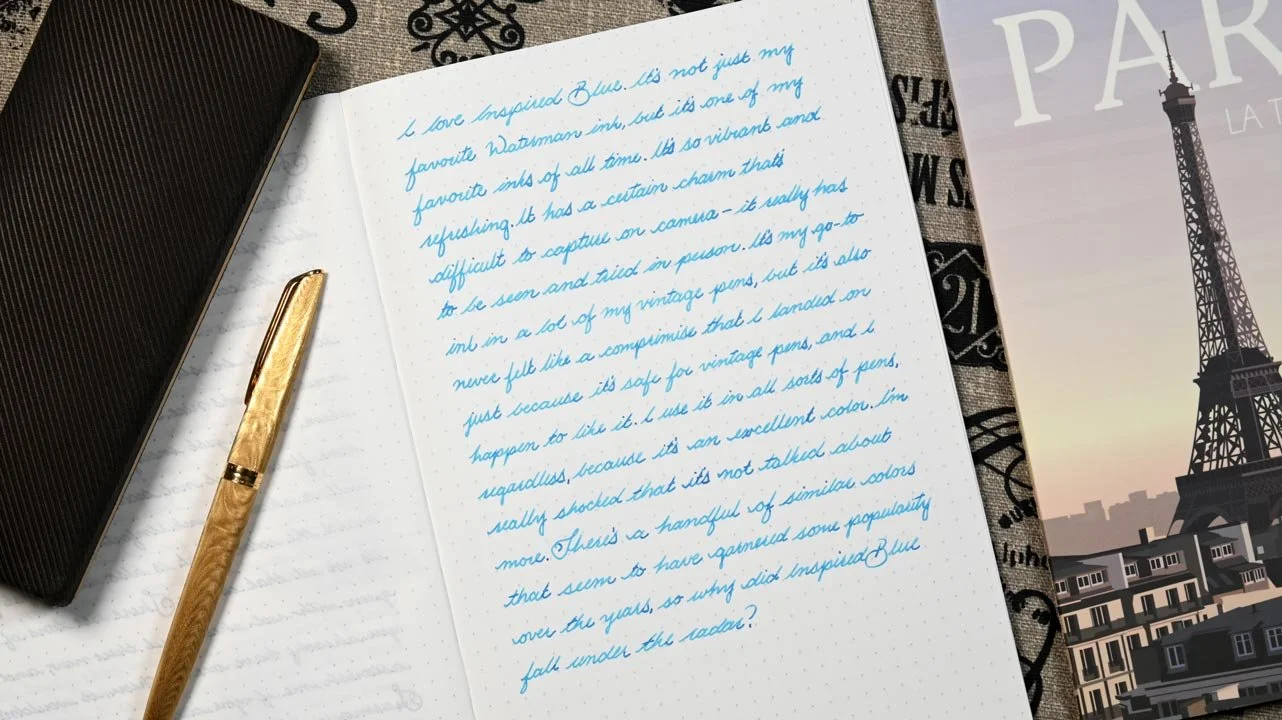 I love Inspired Blue. It's not just my
favorite Waterman ink, but it's one of my
favorite inks of all time. It's so vibrant and
refreshing. It has a certain charm that's
difficult to capture on camera – it really has
to be seen and tried in person. It's my go-to
ink in a lot of my vintage pens, but it's also
never felt like a comprimise that I landed on
just because it's safe for vintage pens, and I
happen to like it. I use it in all sorts of pens,
regardless, because it's an excellent color. I'm
really shocked that it's not talked about
more. There's a handful of similar colors
that seem to have garnered some popularity
over the years, so why did Inspired Blue
fall under the radar?
PAR
LA T
21